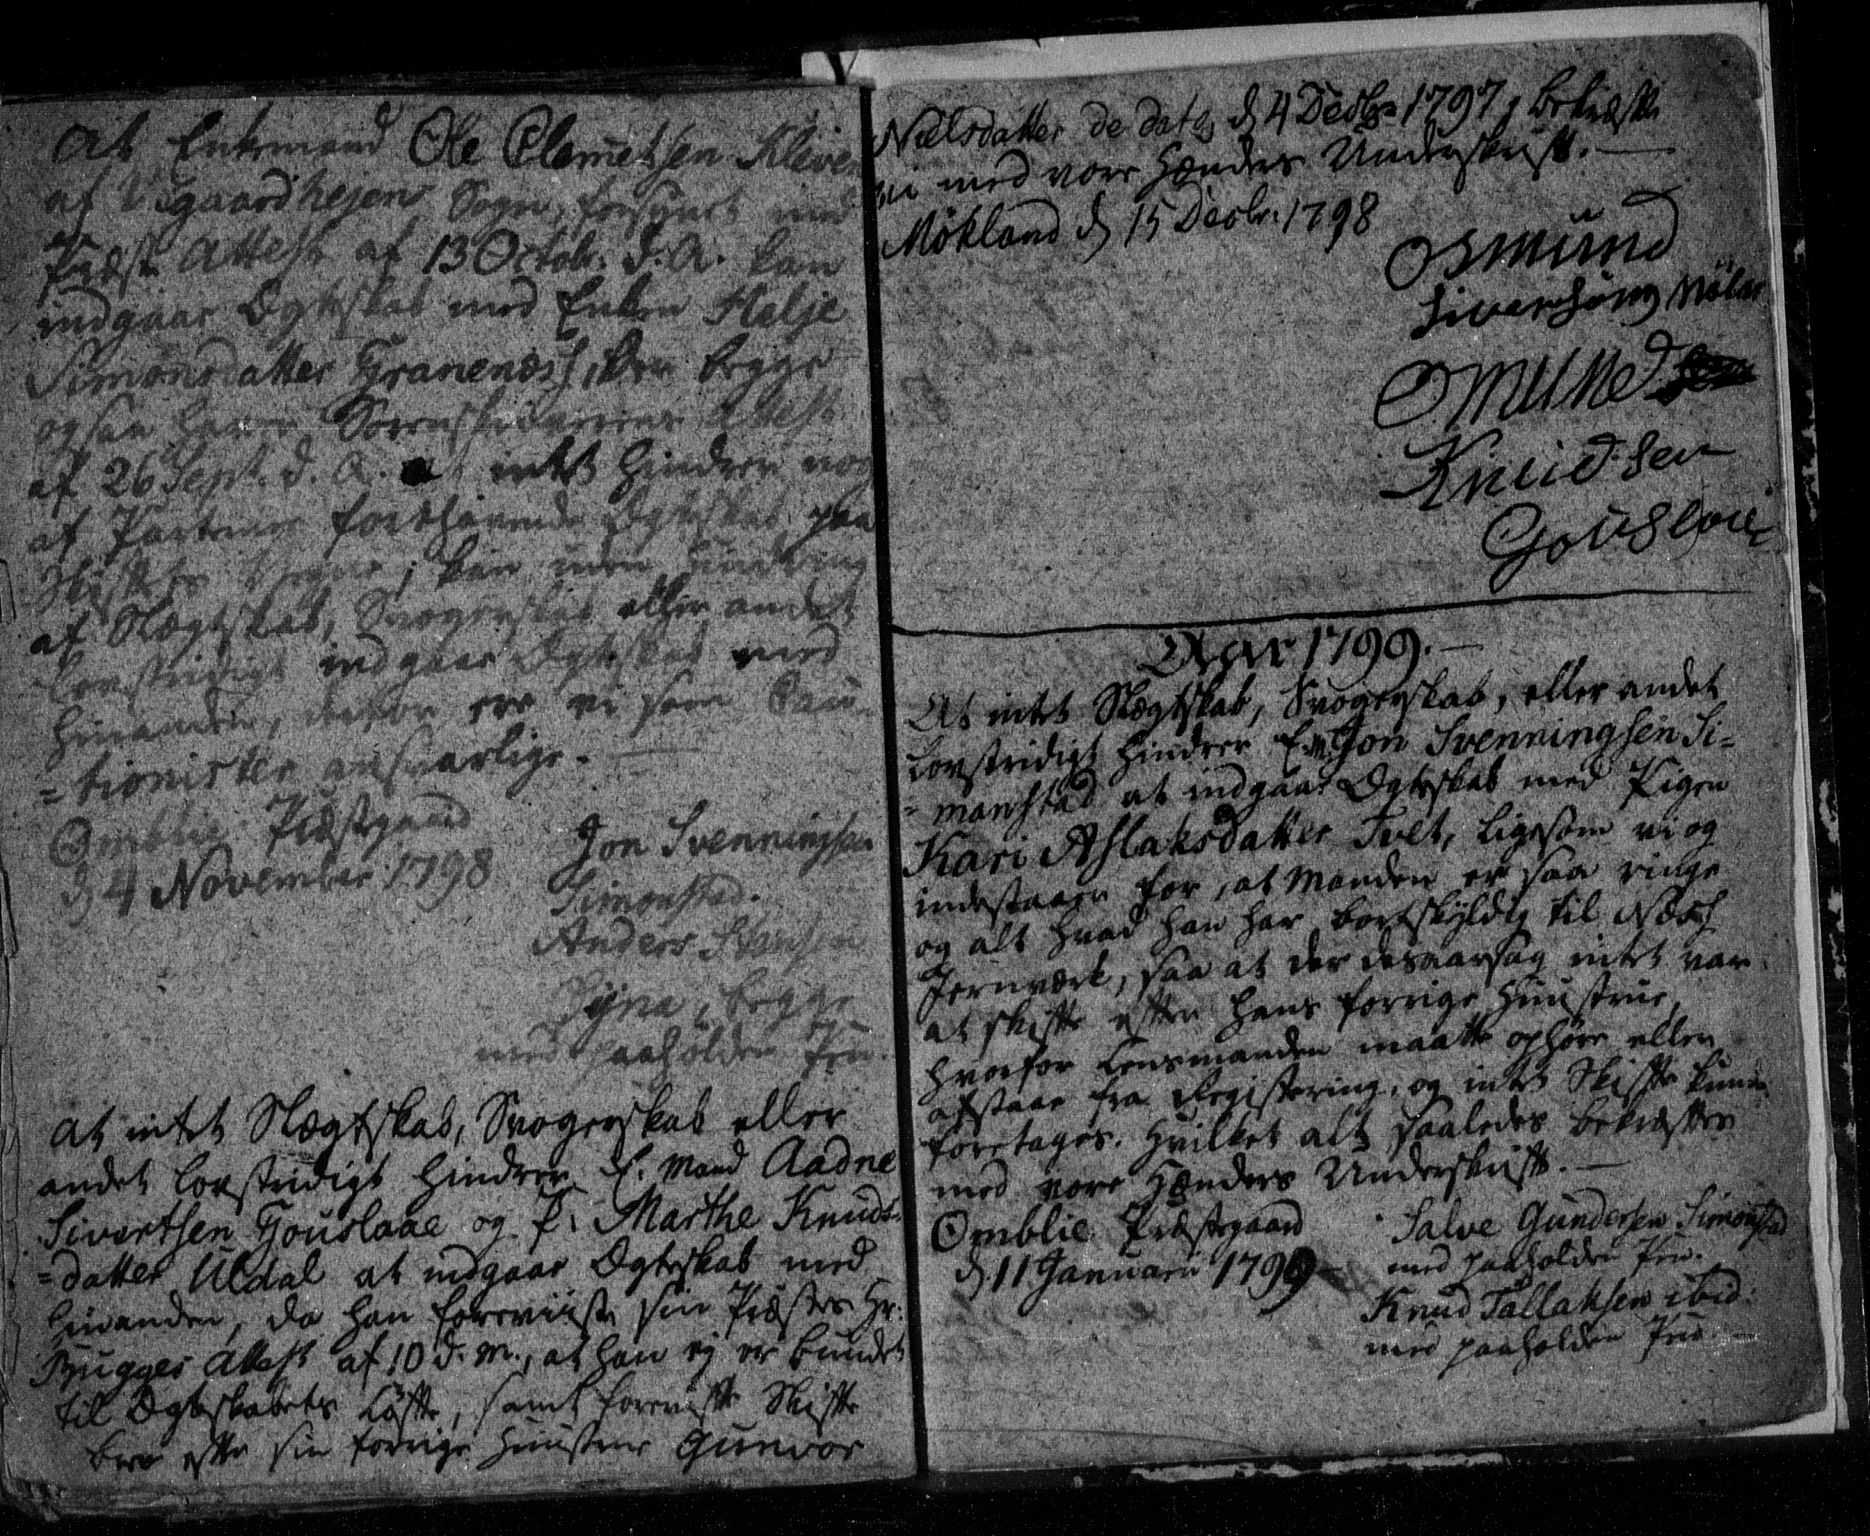 At Enkemand Ole Clemetsen Kleven
af Vegaardhejens Sogn, forsynet med
Præste Attest af 13 Octobr. d. A. kan
indgaae Ægteskab med Enken Helje
Simonsdatter Granenæs, den begge
ogsaa haver Sorenskriverens Attest
af 26 Sept. d. A. at intet hindrer nog
af Parterne forehavende Ægteskab paa
Skiftes Vegne, kan uden hindring
af Slægtskab, Svogerskab eller andet
lovstridigt indgaae Ægteskab med
hinanden, derfor ere vi som Cau-
=tionister ansvarlige. —
Omblie Præstegaard
d 4 November 1798
Jon Svenningsen
Simonstad.
Anders Hansen
Dyna, begge
med paaholden Pen.
At intet Slægtskab, Svogerskab eller
andet lovstridigt hindrer E. Mand Aadne
Sivertsen Gouslaae og P. Marthe Knuds-
=datter Uldal at indgaae Ægteskab med
hinanden, da han foreviiste sin Præstes Hr.
Bugges Attest af 10 d. M., at han ej er bundet
til Ægteskabets Løfte, samt foreviste Skifte
brev efter sin forrige Hustrue Gunvor
Nielsdatter de dato d 4 Decbr 1797, bekræfte
vi med vore Hænders Underskrift. —
Mökland d 15 Decbr. 1798
Osmund
Siversøng Mölan
Omuned
Knudsen
Gouslaae
Aar 1799. —
At intet Slægtskab, Svogerskab, eller andet
lovstridigt hindrer E.M. Jon Svenningsen Si=
=monstad at indgaae Ægteskab med Pigen
Kari Aslaksdatter Tvet, ligesom vi og
indestaaer for, at Manden er saa ringe
og alt hvad han har bortskyldig til Næs
Jernværk, saa at der desaarsag intet var
at skifte efter hans forrige Huustrue,
hvorfor Lensmanden maatte ophøre eller
afstaae fra Registering, og intet Skifte kunde
foretages. Hvilket alt saaledes bekræftes
med vore Hænders Underskrift. —
Omblie Præstegaard
d. 11 Januarii 1799 —
Salve Gundersen Simonstad
med paaholden Pen.
Knud Tallaksen ibid:
med paaholden Pen. —